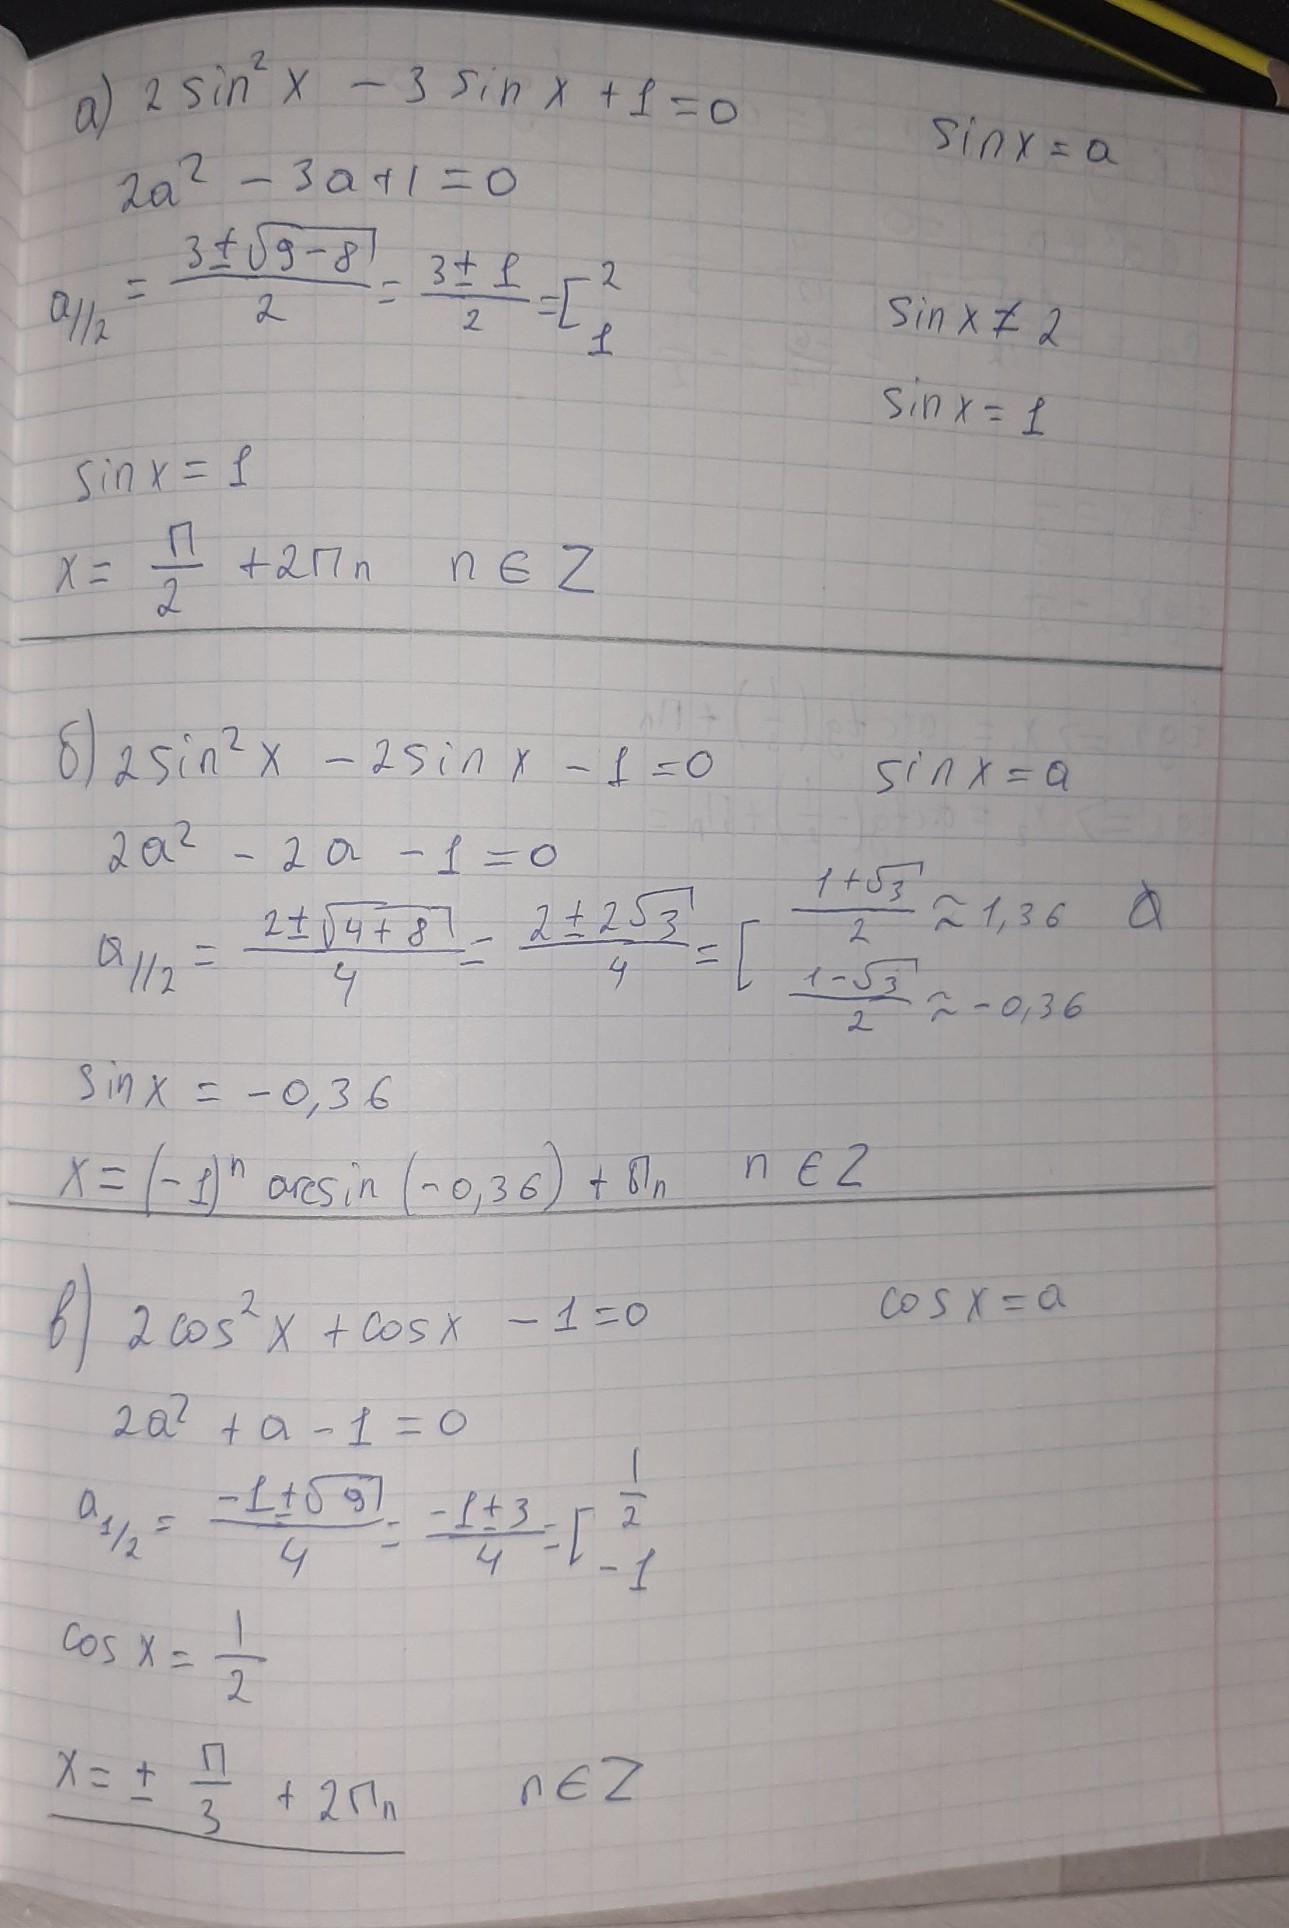 а) 2 sin² x − 3 sin x + 1 = 0   sin x = a
2a² − 3a + 1 = 0
a₁/₂ = (3 ± √(9 − 8))/2 = (3 ± 1)/2 = [ 2 1
sin x ≠ 2
sin x = 1
sin x = 1
x = П/2 + 2Пn   n ∈ Z
б) 2 sin² x − 2 sin x − 1 = 0   sin x = a
2a² − 2a − 1 = 0
a₁/₂ = (2 ± √(4 + 8))/4 = (2 ± 2√3)/4 = [ (1 + √3)/2 ≈ 1,36 (1 − √3)/2 ≈ −0,36
sin x = −0,36
x = (−1)ⁿ arcsin (−0,36) + Пn   n ∈ Z
в) 2 cos² x + cos x − 1 = 0   cos x = a
2a² + a − 1 = 0
a₁/₂ = (−1 ± √9)/4 = (−1 ± 3)/4 = [ 1/2 −1
cos x = 1/2
x = ± П/3 + 2Пn   n ∈ Z